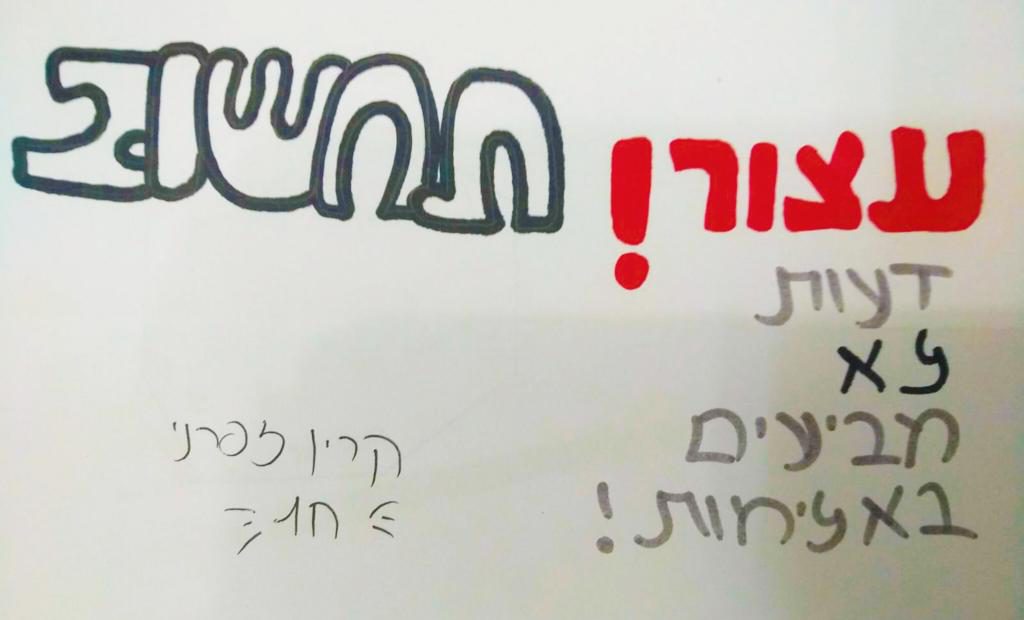 עצור! תחשוב
דעות
לא
מביעים
באלימות!
קרין זפרני
ח1